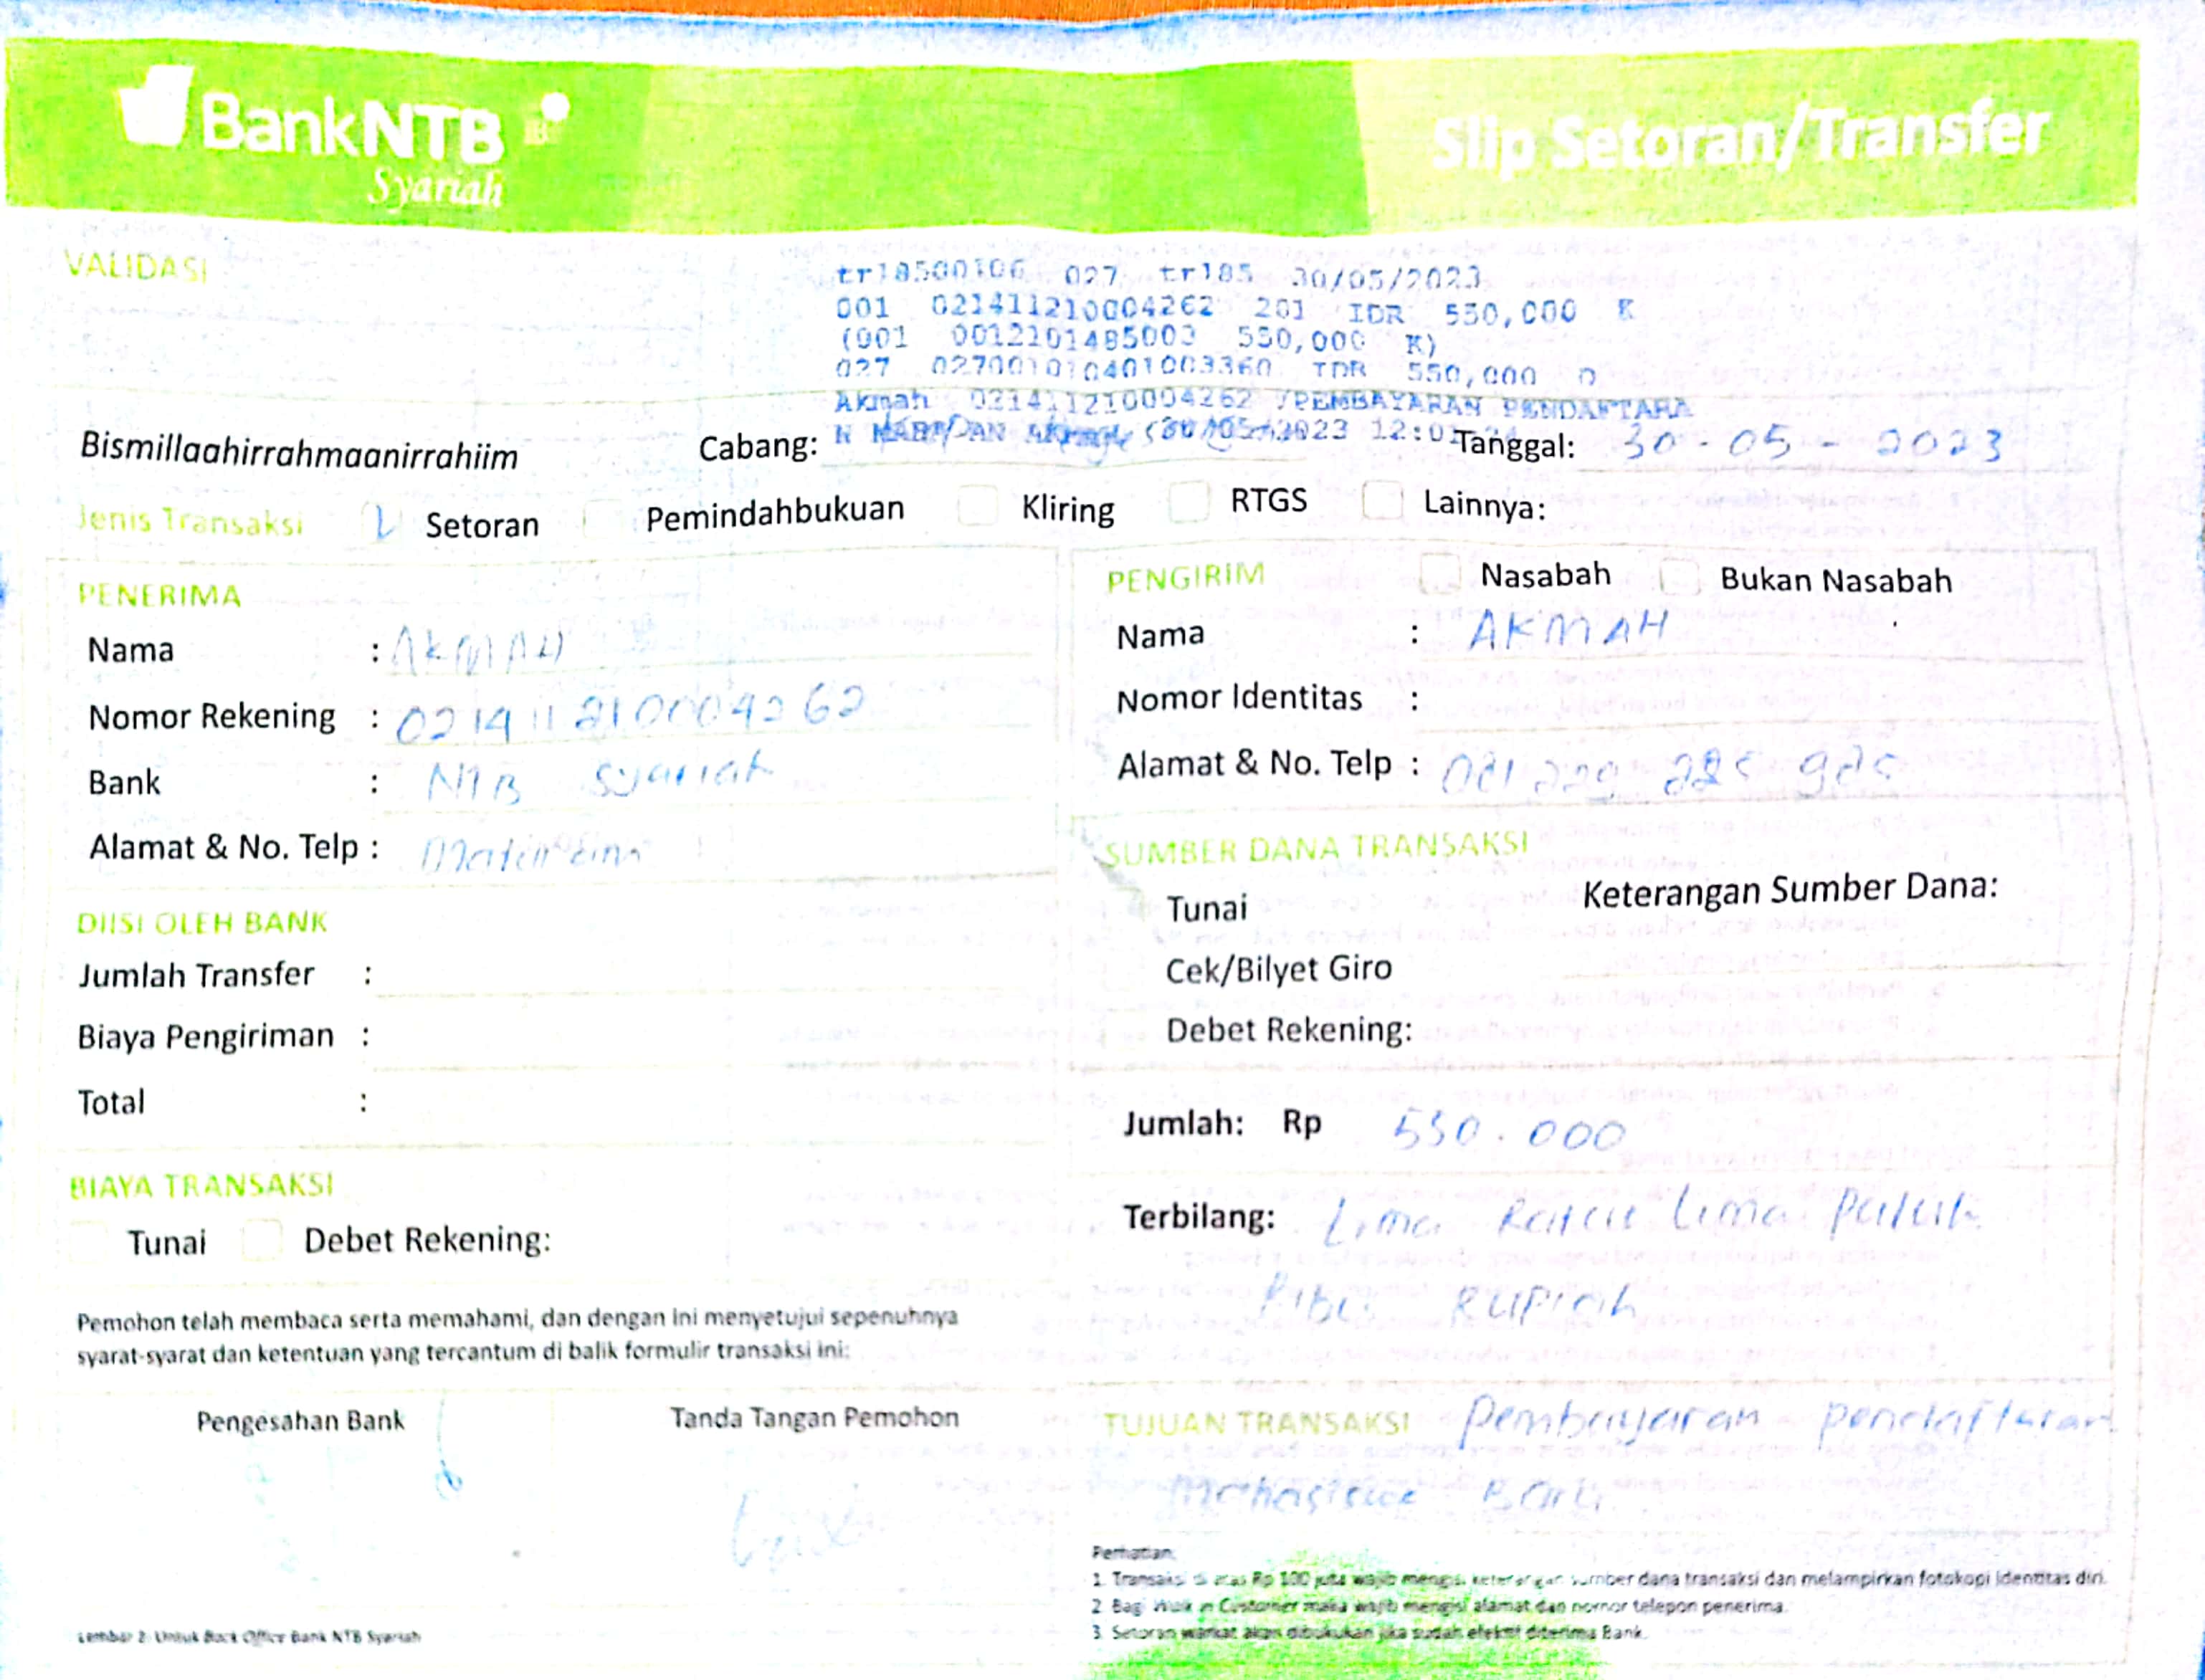 BankNTB
Syariah
Slip Setoran/Transfer
VALIDASI
tr18500106 027 tr185 30/05/2023
001 021411210004262 201 IDR 550,000 K
(001 0012101485003 550,000 K)
027 027001010401003360 IDR 550,000 D
Akmah 021411210004262 /PEMBAYARAN PENDAFTARA
N (30/05/2023 12:01
Bismillaahirrahmaanirrahiim
Cabang:
Tanggal: 30 - 05 - 2023
Jenis Transaksi Setoran Pemindahbukuan Kliring RTGS Lainnya:
PENERIMA
Nama : AKMAH
Nomor Rekening : 021411210004262
Bank : NTB Syariah
Alamat & No. Telp :
PENGIRIM Nasabah Bukan Nasabah
Nama : AKMAH
Nomor Identitas :
Alamat & No. Telp :
DIISI OLEH BANK
Jumlah Transfer :
Biaya Pengiriman :
Total :
SUMBER DANA TRANSAKSI
Tunai Keterangan Sumber Dana:
Cek/Bilyet Giro
Debet Rekening:
Jumlah: Rp 550.000
Terbilang: Lima Ratus Lima Puluh
Ribu Rupiah
BIAYA TRANSAKSI
Tunai Debet Rekening:
Pemohon telah membaca serta memahami, dan dengan ini menyetujui sepenuhnya
syarat-syarat dan ketentuan yang tercantum di balik formulir transaksi ini:
Pengesahan Bank Tanda Tangan Pemohon
TUJUAN TRANSAKSI Pembayaran pendaftaran
Mahasiswa Baru
Perhatian:
1. Transaksi di atas Rp 100 juta wajib mengisi keterangan sumber dana transaksi dan melampirkan fotokopi identitas diri.
2. Bagi Walk in Customer maka wajib mengisi alamat dan nomor telepon penerima.
3. Setoran warkat akan dibukukan jika sudah efektif diterima Bank.
Lembar 2: Untuk Back Office Bank NTB Syariah